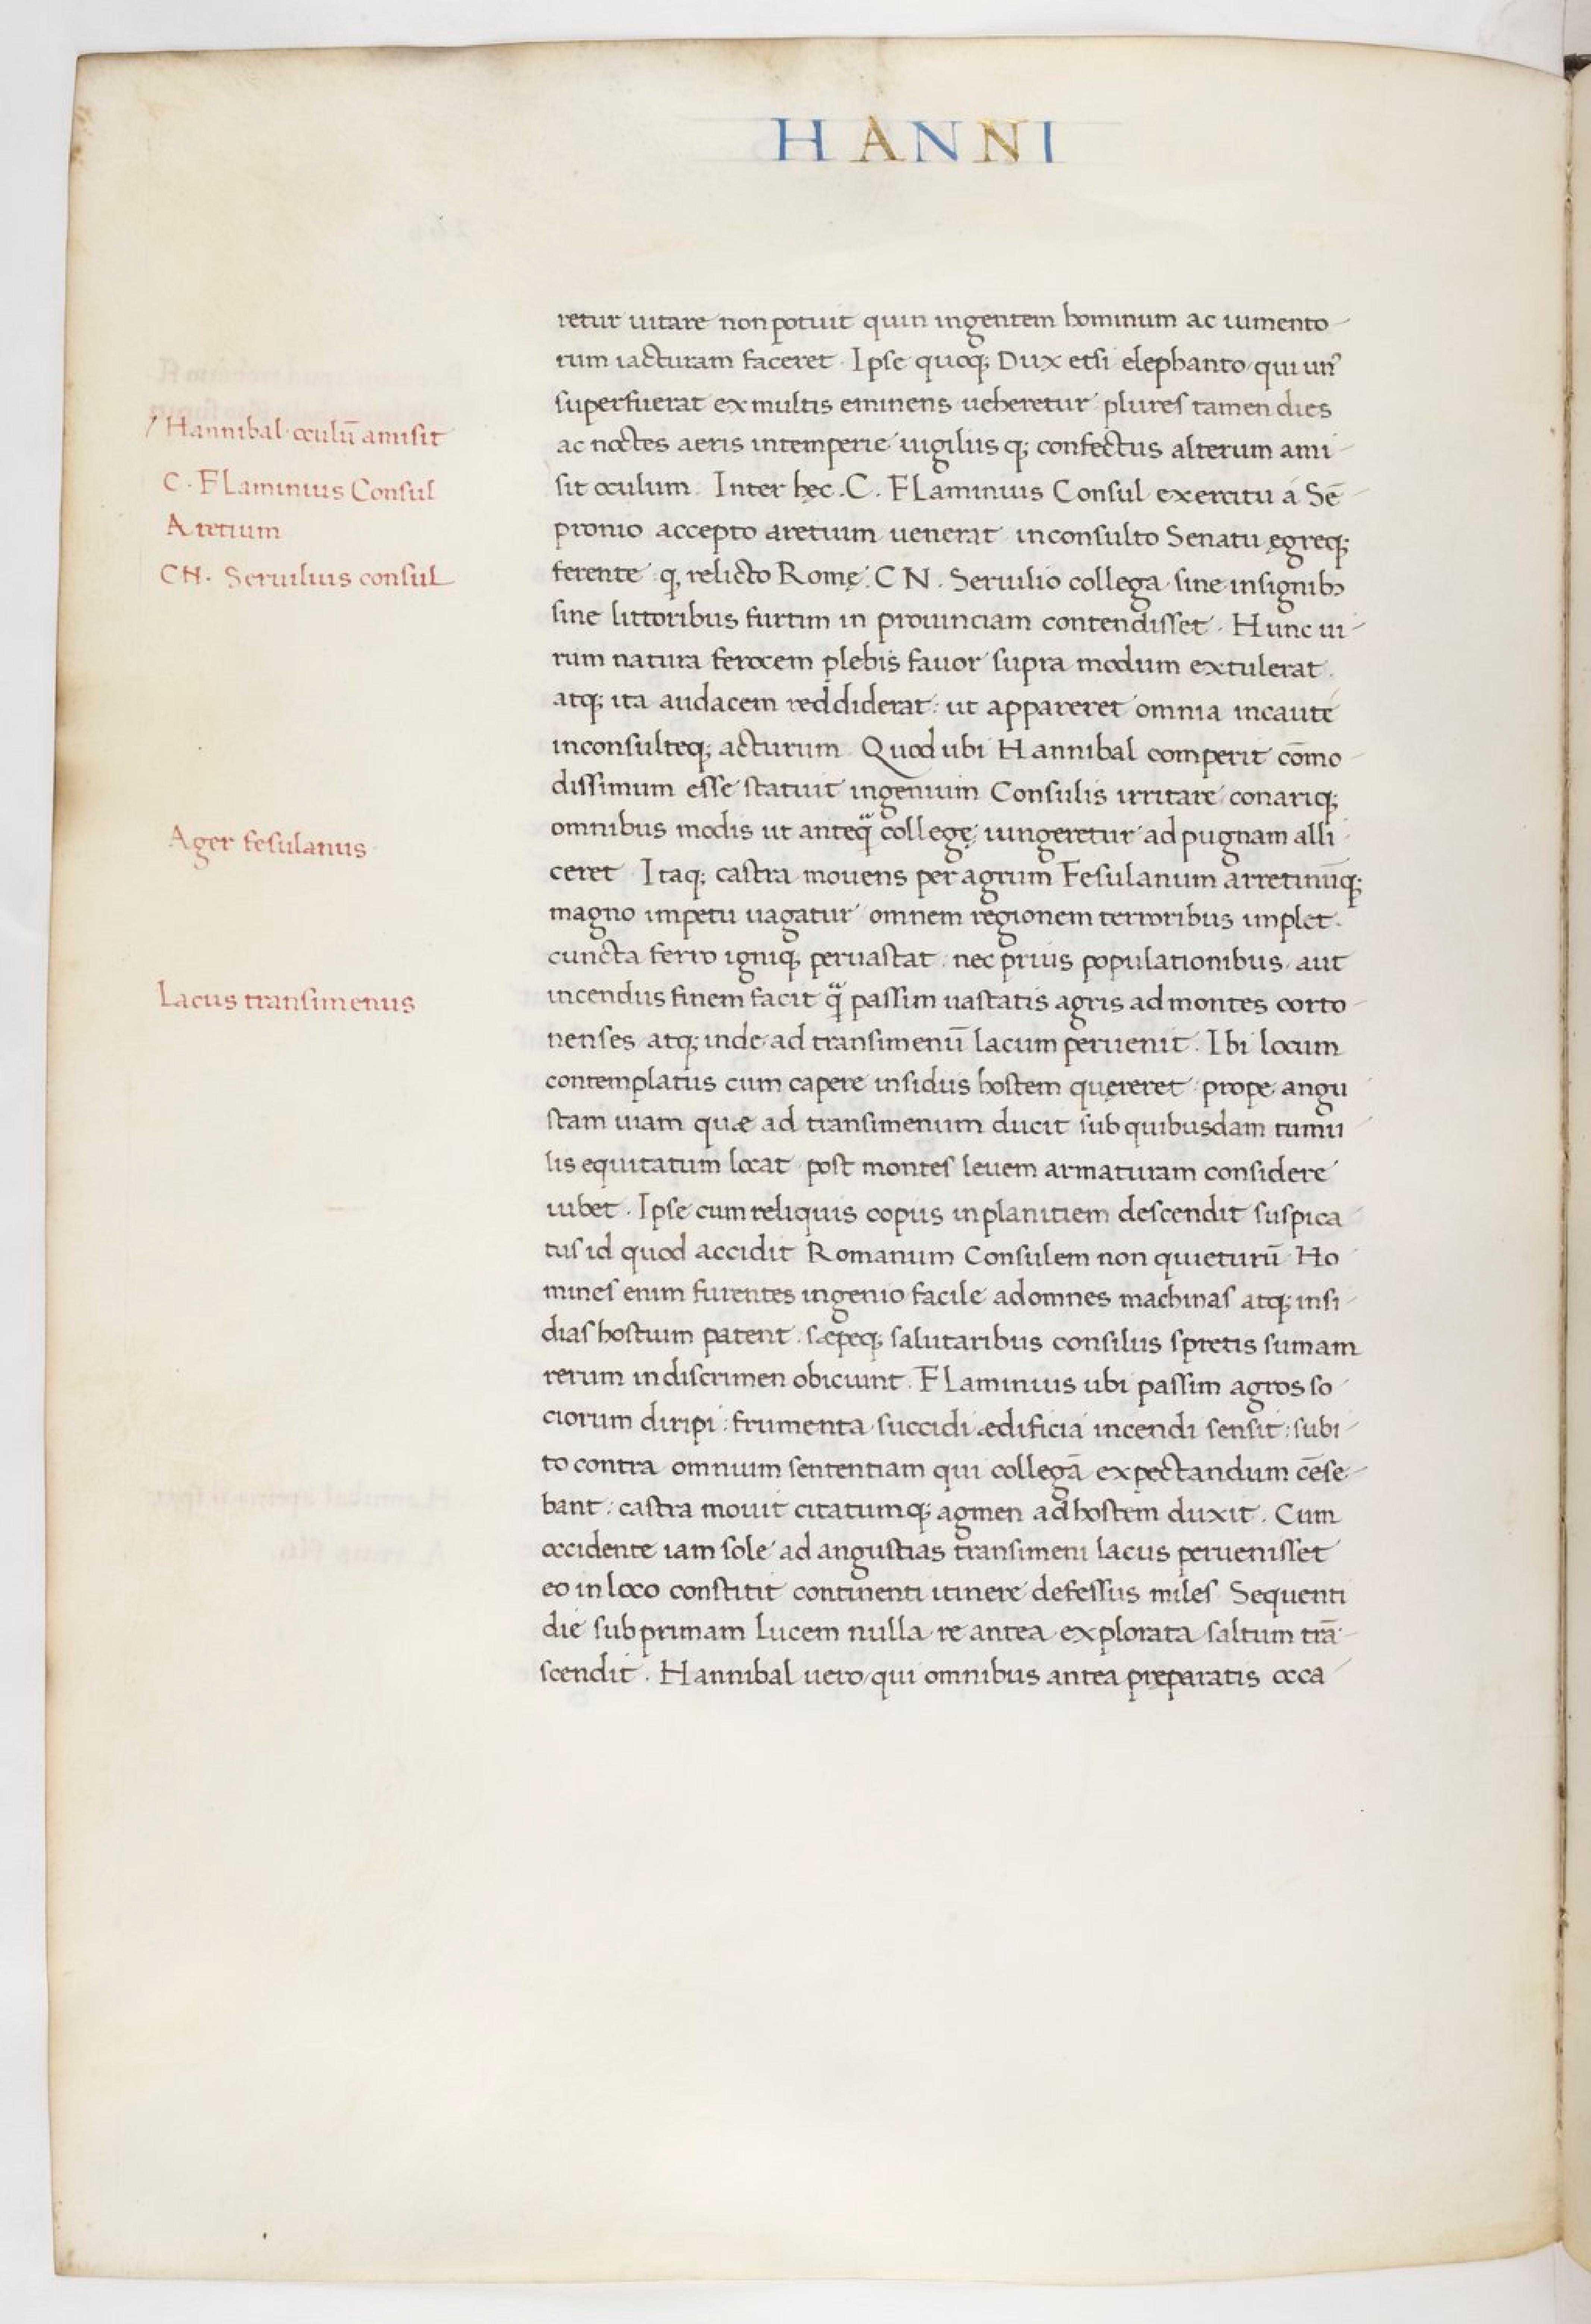 HANNI
retur uitare non potuit quin ingentem hominum ac iumento-
rum iacturam faceret. Ipse quoq; Dux etsi elephanto qui un᾽
superfuerat ex multis eminens ueheretur plures tamen dies
ac noctes aeris intemperie uigiliis q; confectus alterum ami-
sit oculum. Inter hęc. C. Flaminius Consul exercitu á Sē-
pronio accepto aretium uenerat inconsulto Senatu ęgreq;
ferente q relicto Romę. CN. Seruilio collega sine insignibꝫ
sine littoribus furtim in prouinciam contendisset. Hunc ui-
rum natura ferocem plebis fauor supra modum extulerat.
atq; ita audacem reddiderat: ut appareret omnia incauté
inconsulteq; acturum. Quod ubi Hannibal comperit cōmo-
dissimum esse statuit ingenium Consulis irritare conariq;
omnibus modis ut anteq̃ collegę iungeretur ad pugnam alli-
ceret. Itaq; castra mouens per agrum Fesulanum arretinūq;
magno impetu uagatur omnem regionem terroribus implet.
cuncta ferro igniq; peruastat. nec prius populationibus aut
incendiis finem facit q̃ passim uastatis agris ad montes corto-
nenses atq; inde ad transimenū lacum peruenit. Ibi locum
contemplatus cum capere insidiis hostem quęreret prope angu
stam uiam quæ ad transimenum ducit sub quibusdam tumu-
lis equitatum locat post montes leuem armaturam considere
iubet. Ipse cum reliquis copiis in planitiem descendit suspica-
tus id quod accidit Romanum Consulem non quieturū. Ho-
mines enim furentes ingenio facile ad omnes machinas atq; insi-
dias hostium patent. sæpeq; salutaribus consiliis spretis sumam
rerum in discrimen obiciunt. Flaminius ubi passim agros so-
ciorum diripi: frumenta succidi ædificia incendi sensit: subi-
to contra omnium sententiam qui collegā expectandum cēse-
bant: castra mouit citatumq; agmen ad hostem duxit. Cum
occidente iam sole ad angustias transimeni lacus peruenisset
eo in loco constitit continenti itinere defessus miles. Sequenti
die sub primam lucem nulla re antea explorata saltum trā-
scendit. Hannibal uero/qui omnibus antea pręparatis occa-
/Hannibal oculū amisit
C. Flaminius Consul
Aretium
CN. Seruilius consul
Ager fesulanus
Lacus transimenus